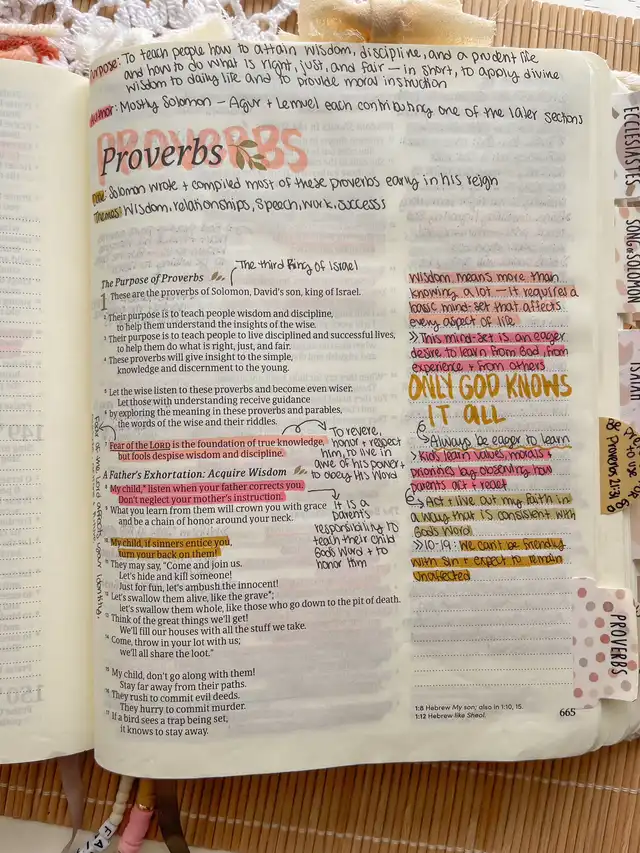 Purpose: To teach people how to attain wisdom, discipline, and a prudent life
and how to do what is right, just, and fair — in short, to apply divine
wisdom to daily life and to provide moral instruction
Author: Mostly Solomon - Agur + Lemuel each contributing one of the later sections
PROVERBS
Proverbs
Solomon wrote + compiled most of these proverbs early in his reign
Themes: Wisdom, relationships, speech, work, success
The third King of Israel
The Purpose of Proverbs
1 These are the proverbs of Solomon, David's son, king of Israel.
2 Their purpose is to teach people wisdom and discipline,
to help them understand the insights of the wise.
3 Their purpose is to teach people to live disciplined and successful lives,
to help them do what is right, just, and fair.
4 These proverbs will give insight to the simple,
knowledge and discernment to the young.
5 Let the wise listen to these proverbs and become even wiser.
Let those with understanding receive guidance
6 by exploring the meaning in these proverbs and parables,
the words of the wise and their riddles.
7 Fear of the LORD is the foundation of true knowledge,
but fools despise wisdom and discipline.
To revere,
honor + respect
him, to live in
awe of his power +
to obey His Word
A Father's Exhortation: Acquire Wisdom
8 My child,* listen when your father corrects you.
Don't neglect your mother's instruction.
9 What you learn from them will crown you with grace
and be a chain of honor around your neck.
It is a
parents
responsibility to
teach their child
God's Word + to
honor Him
10 My child, if sinners entice you,
turn your back on them!
11 They may say, "Come and join us.
Let's hide and kill someone!
Just for fun, let's ambush the innocent!
12 Let's swallow them alive, like the grave*;
let's swallow them whole, like those who go down to the pit of death.
13 Think of the great things we'll get!
We'll fill our houses with all the stuff we take.
14 Come, throw in your lot with us;
we'll all share the loot."
15 My child, don't go along with them!
Stay far away from their paths.
16 They rush to commit evil deeds.
They hurry to commit murder.
17 If a bird sees a trap being set,
it knows to stay away.
Wisdom means more than
knowing a lot — it requires a
basic mind-set that affects
every aspect of life
>> This mind-set is an eager
desire to learn from God, from
experience + from others
ONLY GOD KNOWS
IT ALL
Always be eager to learn
> Kids learn values, morals +
priorities by observing how
parents act + react
Act + live out my faith in
a way that is consistent with
God's Word
>> 10-19: We can't be friendly
with sin + expect to remain
unaffected
1:8 Hebrew My son; also in 1:10, 15.
1:12 Hebrew like Sheol.
665
ECCLESIASTES
SONG of SOLOMON
ISAIAH
Proverbs 21:31
PROVERBS